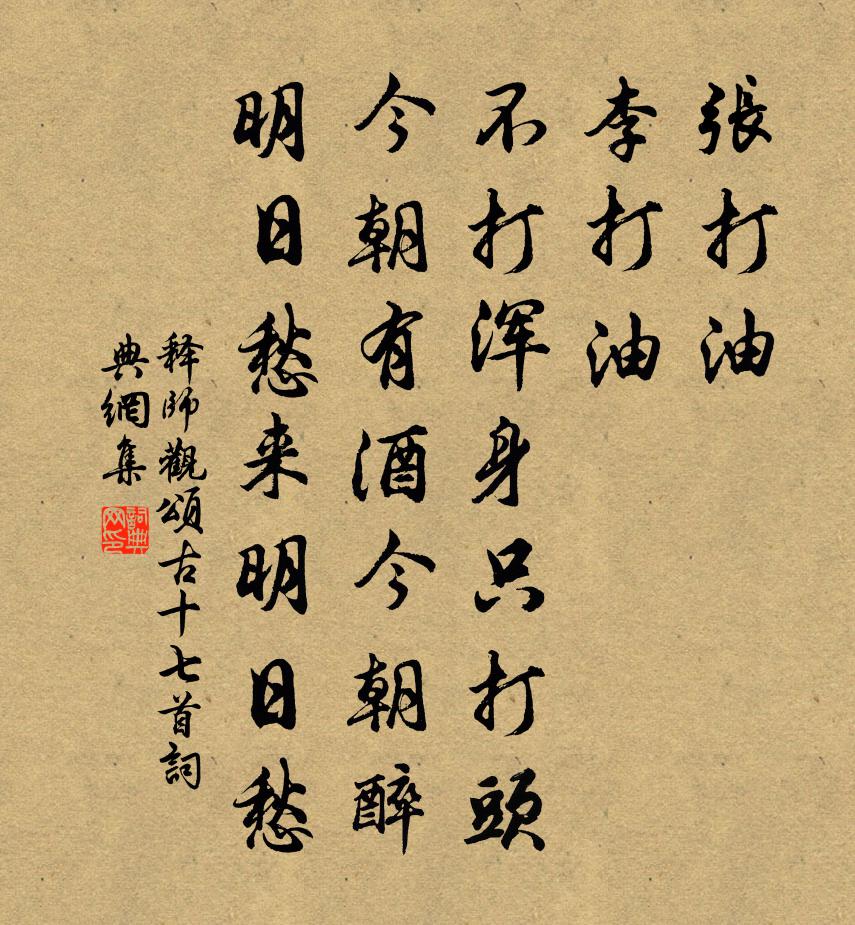 張打油
李打油
不打浑身只打頭
今朝有酒今朝醉
明日愁来明日愁
释師觀頌古十七首詞
典網集
詞典
网印